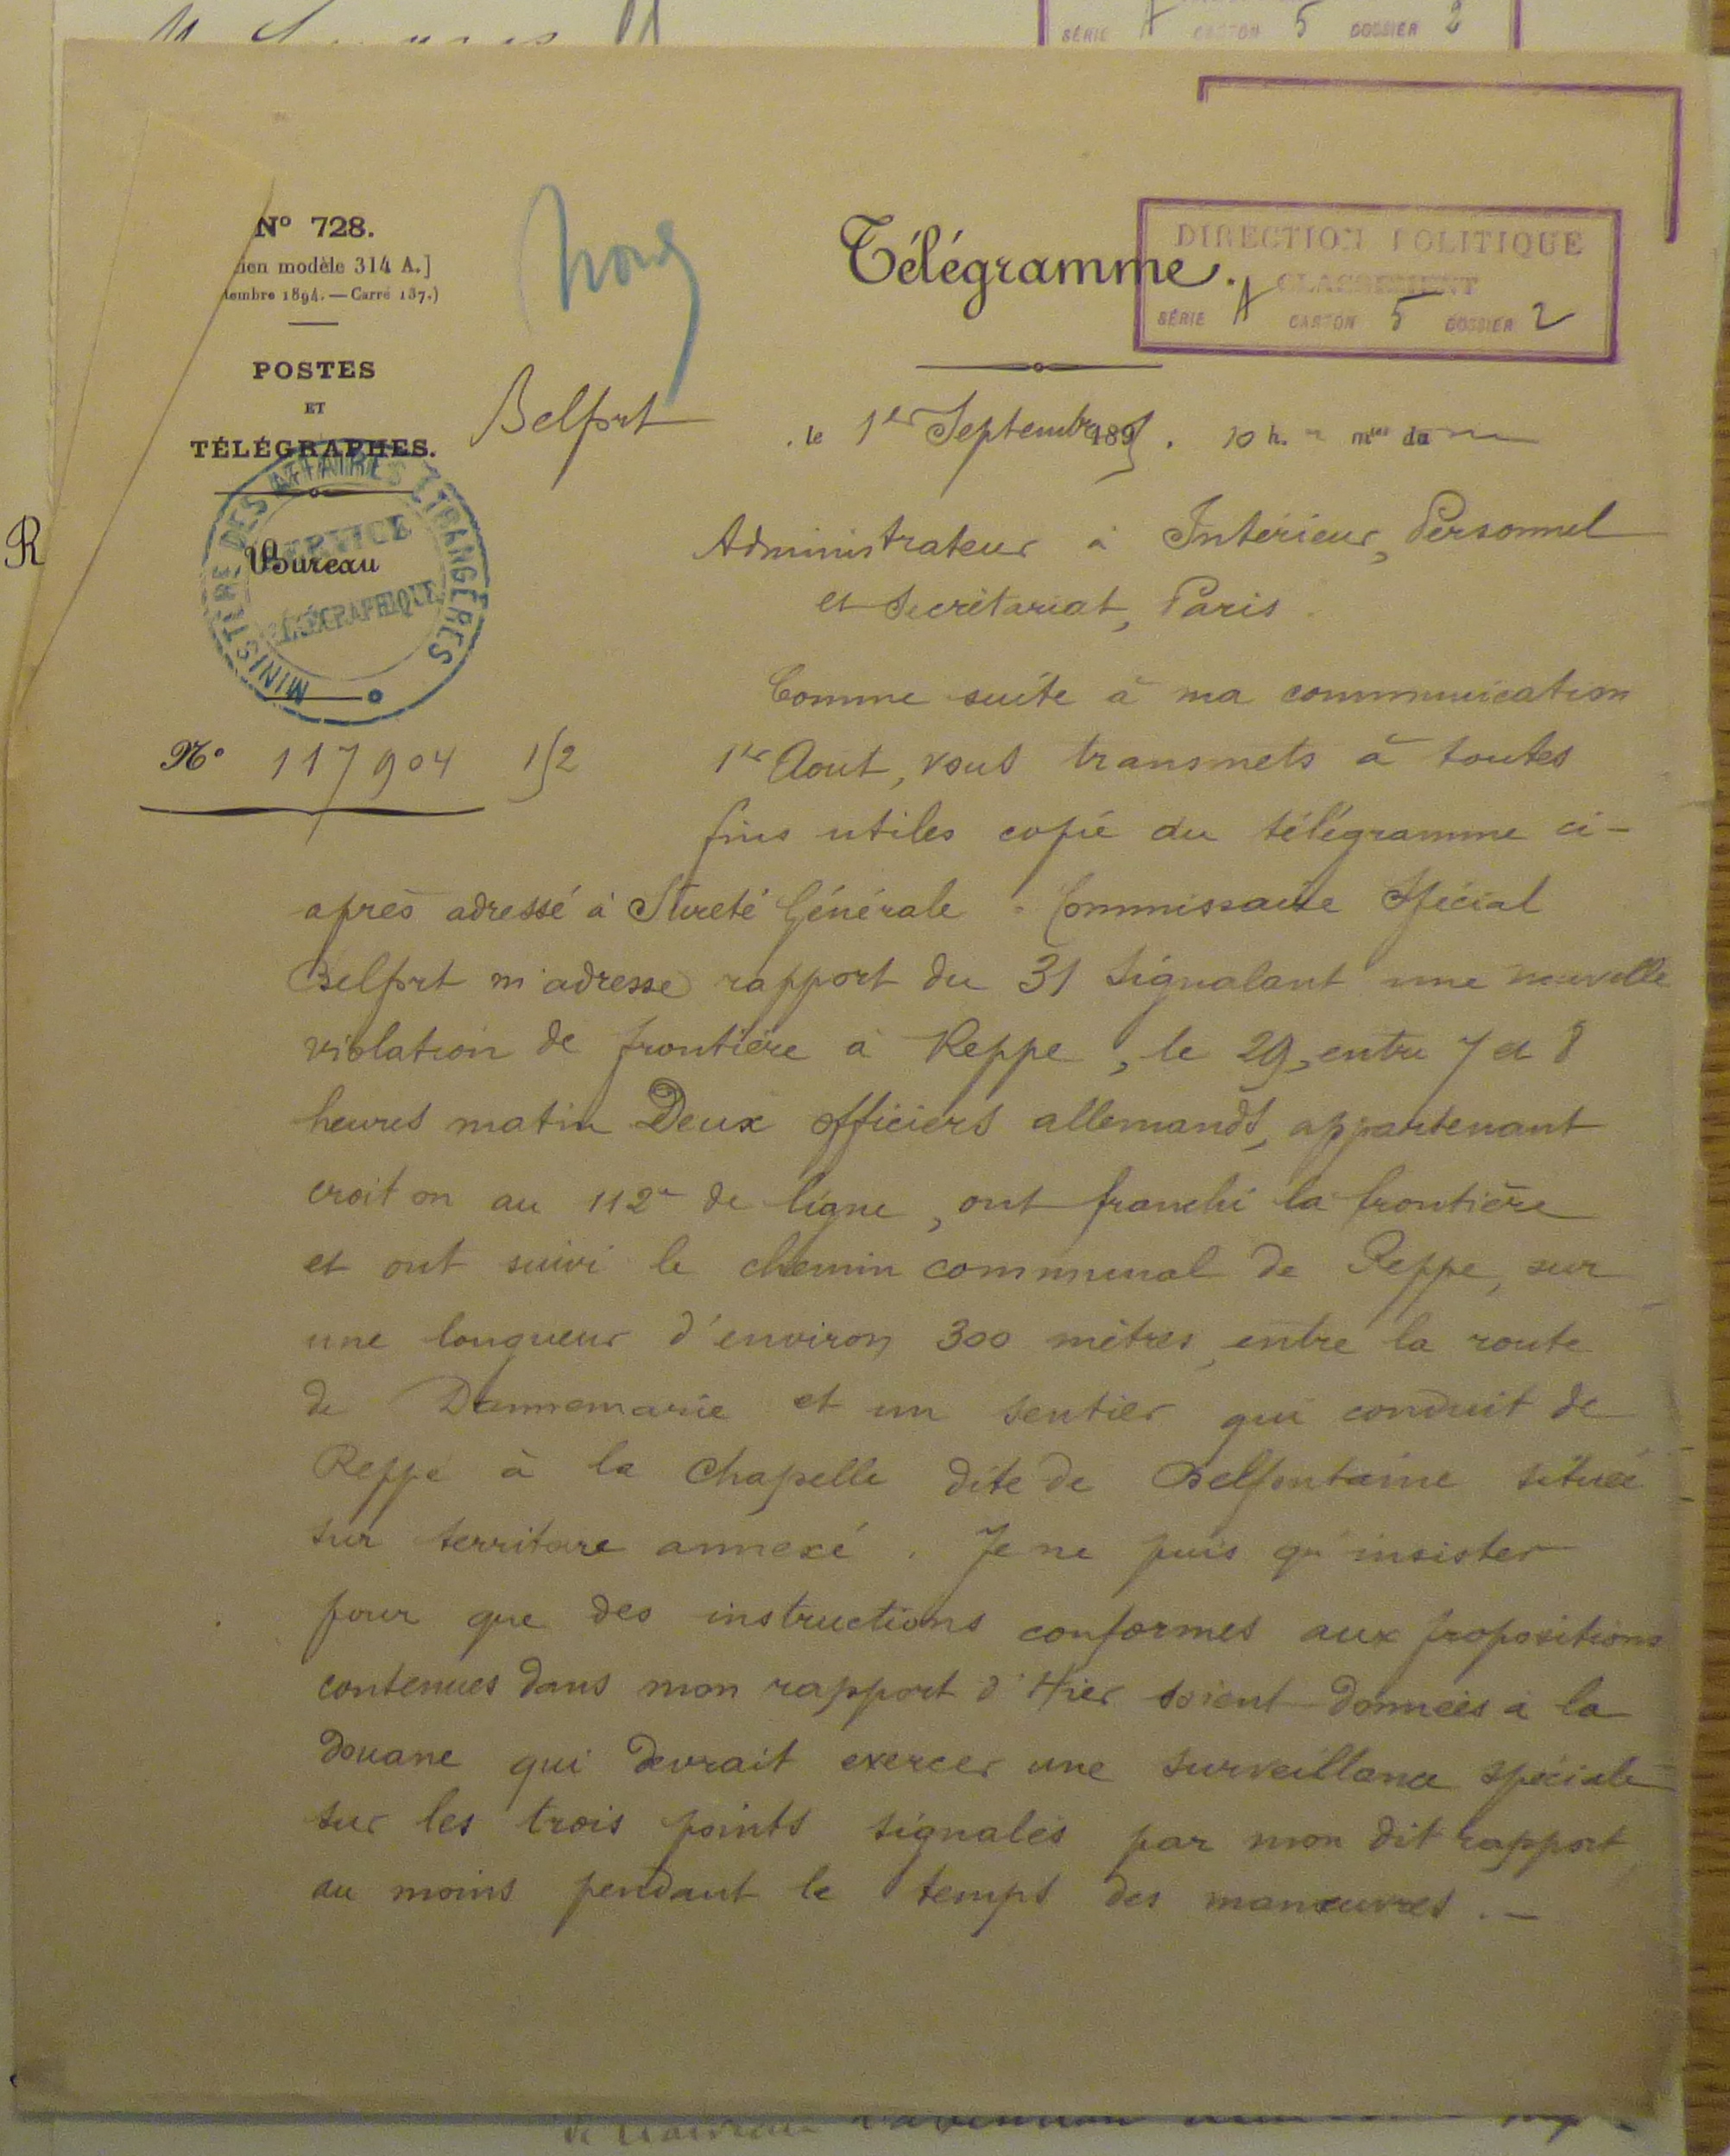 SÉRIE A CARTON 5 DOSSIER 2
Nº 728.
ien modèle 314 A.]
tembre 1894. — Carré 137.)
POSTES
ET
TÉLÉGRAPHES.
Bureau
MINISTÈRE DES AFFAIRES ÉTRANGÈRES
SERVICE
TÉLÉGRAPHIQUE
Nord
Télégramme.
DIRECTION POLITIQUE
CLASSEMENT
SÉRIE A CARTON 5 DOSSIER 2
Belfort, le 1er Septembre 1895. 10 h. mes du m
R
Administrateur à Intérieur, Personnel
et Secrétariat, Paris.
Nº 117904 1/2
Comme suite à ma communication
1er Aout, vous transmets à toutes
fins utiles copie du télégramme ci-
après adressé à Sureté Générale. Commissaire Spécial
Belfort m'adresse rapport du 31 signalant une nouvelle
violation de frontière à Reppe, le 29, entre 7 et 8
heures matin Deux officiers allemands, appartenant
croit on au 112e de ligne, ont franchi la frontière
et ont suivi le chemin communal de Reppe, sur
une longueur d'environ 300 mètres, entre la route
de Dannemarie et un sentier qui conduit de
Reppe à la chapelle dite de Belfontaine située
sur territoire annexé. Je ne puis qu'insister
pour que des instructions conformes aux propositions
contenues dans mon rapport d'Hier soient données à la
douane qui devrait exercer une surveillance spéciale
sur les trois points signalés par mon dit rapport,
au moins pendant le temps des manœuvres. —